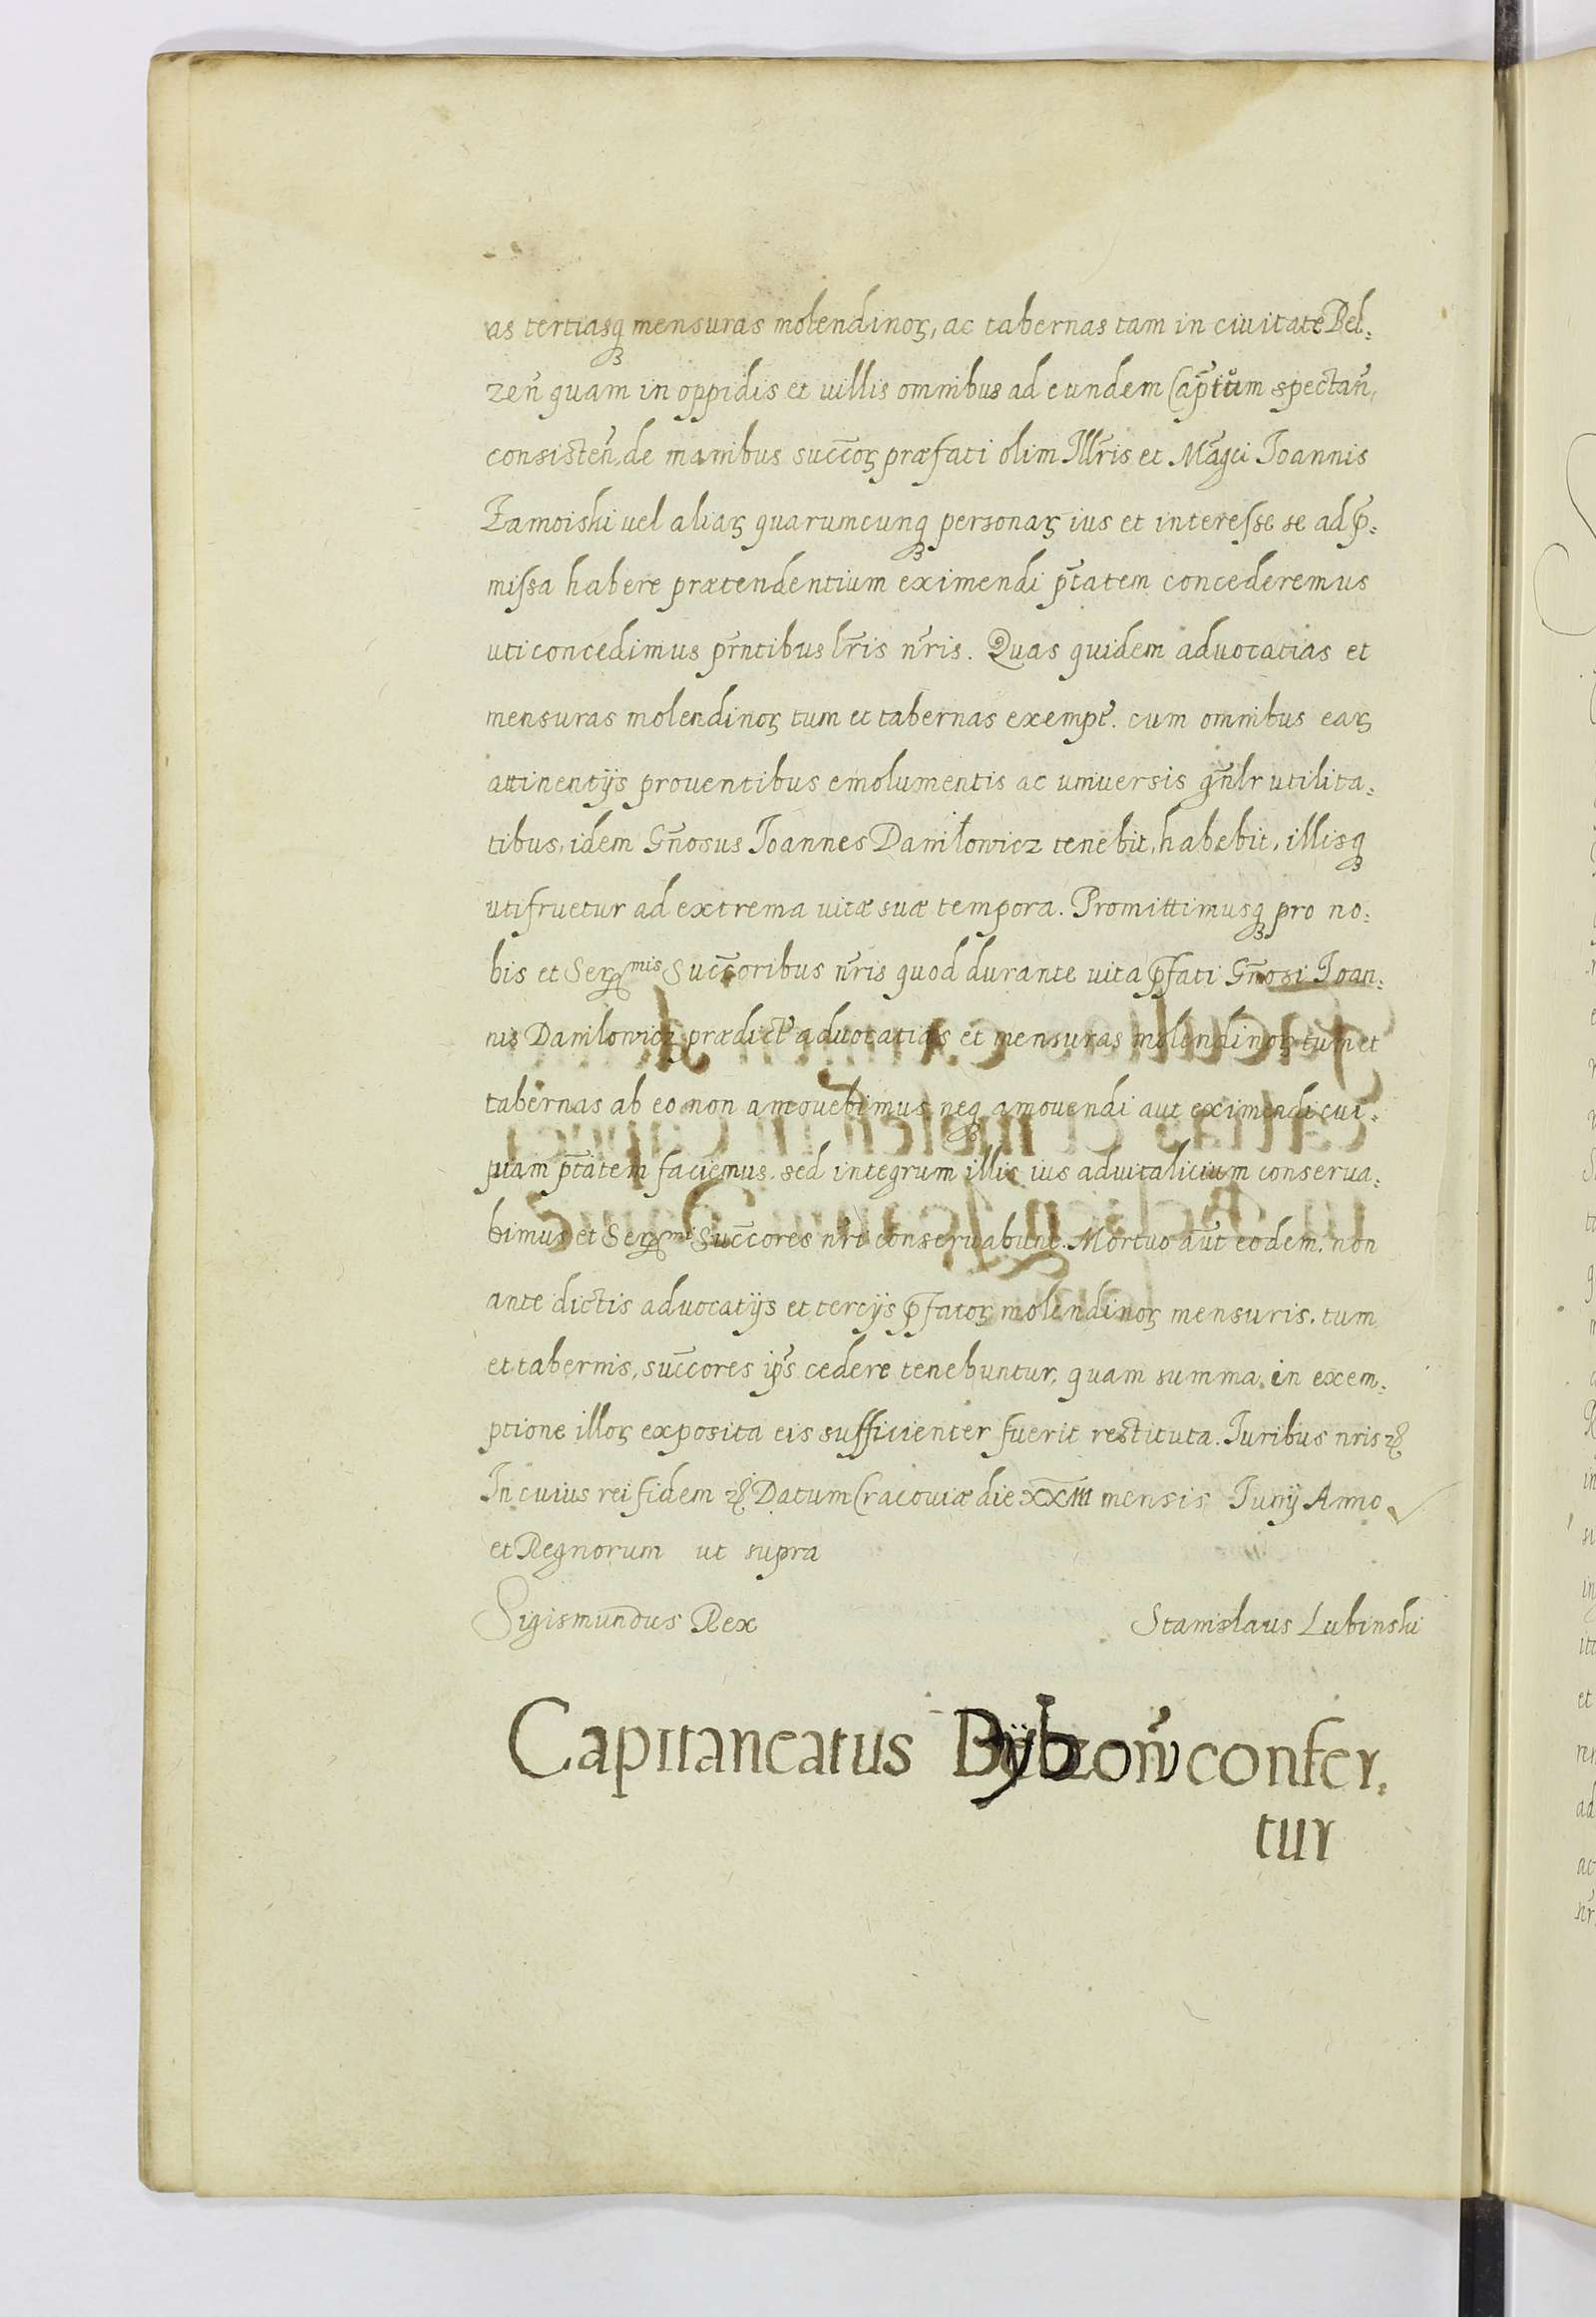 as tertiasq3 mensuras molendinoꝝ, ac tabernas tam in civitate Bel:
zeñ quam in oppidis et villis omnibus ad eundem Cap̃tum spectañ,
consisteñ, de manibus succ̃oꝝ præfati olim Ill̃ris et Mãgci Joannis
Zamoiski vel aliaꝝ quarumcunq3 personaꝝ ius et interesse se ad p̃:
missa habere prætendentium eximendi p̃tatem concederemus
uti concedimus p̃ntibus l̃ris ñris. Quas quidem advocatias et
mensuras molendinoꝝ tum et tabernas exempt̃. cum omnibus eaꝝ
attinentijs proventibus emolumentis ac universis g̃nlr utilita:
tibus, idem Gñosus Joannes Daniłowicz tenebit, habebit, illisq3
utifruetur ad extrema vitæ suæ tempora. Promittimusq3 pro no:
bis et Ser mis Succ̃oribus ñris quod durante vita p̃fati Gñosi Joan:
nis Danilowicz prædict̃ advocatias et mensuras molendinoꝝ tum et
tabernas ab eo non amovebimus neq3 amovendi aut eximendi cui:
piam p̃tatem faciemus. sed integrum illi ius advitalicium conserva:
bimus et Ser mi Succ̃ores ñri conservabunt. Mortuo aũt eodem. non
ante dictis advocatijs et tercijs p̃fatoꝝ molendinoꝝ mensuris. tum
et tabernis, succ̃ores ip̃s cedere tenebuntur, quam summa in exem:
ptione illoꝝ exposita eis sufficienter fuerit restituta. Juribus nris ꝛc
In cuius rei fidem ꝛc Datum Cracoviæ die XXIII mensis Junij Anno
et Regnorum ut supra
Sigismundus Rex Stanislaus Lubinski
Capitaneatus confer:
tur